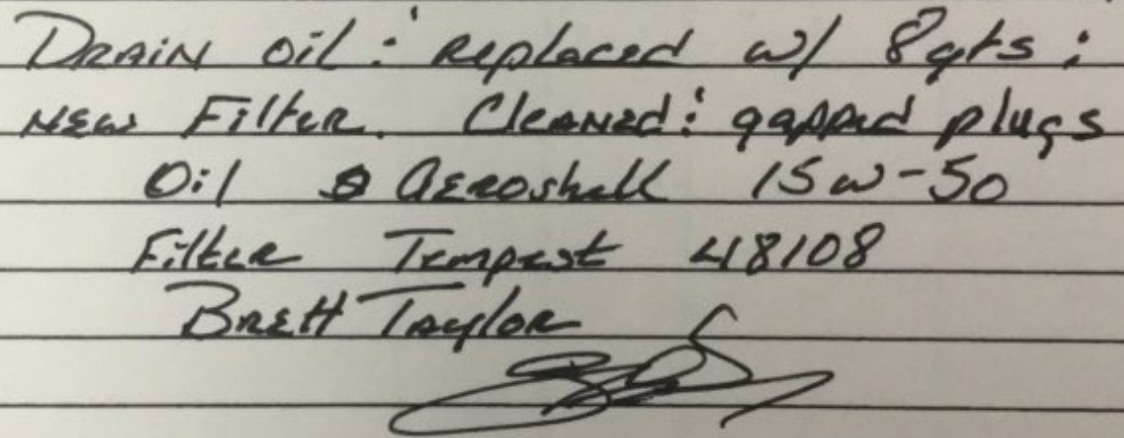 Drain oil : replaced w/ 8qts ;
New Filter. Cleaned : gapped plugs
Oil Aeroshell 15w-50
Filter Tempest 48108
Brett Taylor